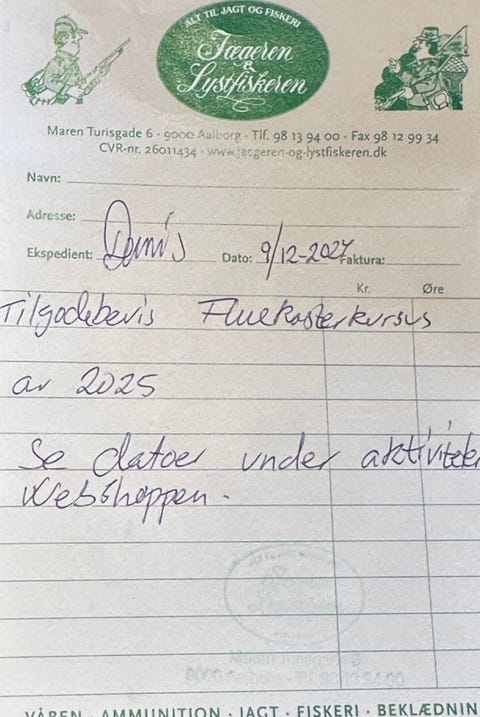 ALT TIL JAGT OG FISKERI
Jægeren
&
Lystfiskeren
Maren Turisgade 6 · 9000 Aalborg · Tlf. 98 13 94 00 · Fax 98 12 99 34
CVR-nr. 26011434 · www.jaegeren-og-lystfiskeren.dk
Navn:
Adresse:
Ekspedient: Dennis Dato: 9/12-2024 Faktura:
Kr. Øre
Tilgodebevis Fluekasterkursus
år 2025
Se datoer under aktiviteter
Webshoppen.
VÅBEN · AMMUNITION · JAGT · FISKERI · BEKLÆDNIN